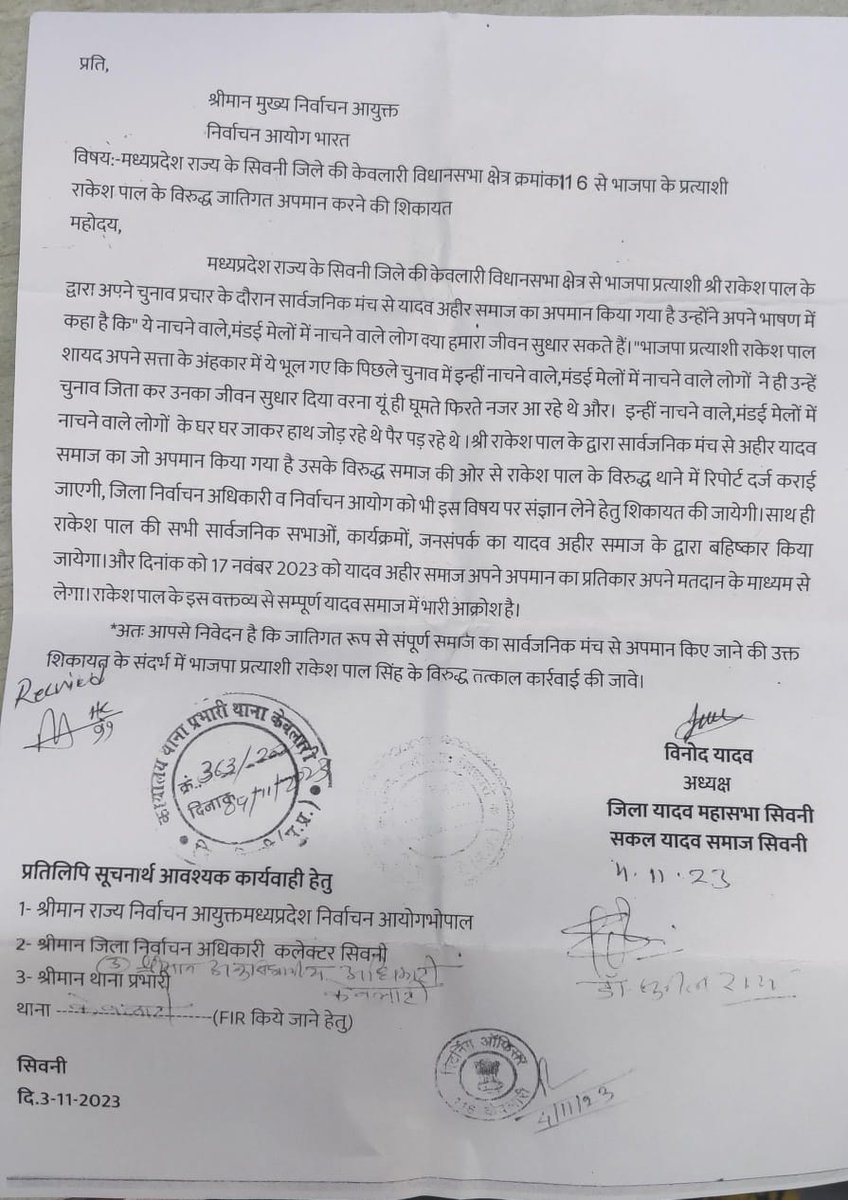 प्रति,
श्रीमान मुख्य निर्वाचन आयुक्त
निर्वाचन आयोग भारत
विषय:-मध्यप्रदेश राज्य के सिवनी जिले की केवलारी विधानसभा क्षेत्र क्रमांक116 से भाजपा के प्रत्याशी
राकेश पाल के विरुद्ध जातिगत अपमान करने की शिकायत
महोदय,
मध्यप्रदेश राज्य के सिवनी जिले की केवलारी विधानसभा क्षेत्र से भाजपा प्रत्याशी श्री राकेश पाल के
द्वारा अपने चुनाव प्रचार के दौरान सार्वजनिक मंच से यादव अहीर समाज का अपमान किया गया है उन्होंने अपने भाषण में
कहा है कि" ये नाचने वाले,मंडई मेलों में नाचने वाले लोग क्या हमारा जीवन सुधार सकते हैं।"भाजपा प्रत्याशी राकेश पाल
शायद अपने सत्ता के अंहकार में ये भूल गए कि पिछले चुनाव में इन्हीं नाचने वाले,मंडई मेलों में नाचने वाले लोगों ने ही उन्हें
चुनाव जिता कर उनका जीवन सुधार दिया वरना यूं ही घूमते फिरते नजर आ रहे थे और। इन्हीं नाचने वाले,मंडई मेलों में
नाचने वाले लोगों के घर घर जाकर हाथ जोड़ रहे थे पैर पड़ रहे थे ।श्री राकेश पाल के द्वारा सार्वजनिक मंच से अहीर यादव
समाज का जो अपमान किया गया है उसके विरुद्ध समाज की ओर से राकेश पाल के विरुद्ध थाने में रिपोर्ट दर्ज कराई
जाएगी, जिला निर्वाचन अधिकारी व निर्वाचन आयोग को भी इस विषय पर संज्ञान लेने हेतु शिकायत की जायेगी।साथ ही
राकेश पाल की सभी सार्वजनिक सभाओं, कार्यक्रमों, जनसंपर्क का यादव अहीर समाज के द्वारा बहिष्कार किया
जायेगा।और दिनांक को 17 नवंबर 2023 को यादव अहीर समाज अपने अपमान का प्रतिकार अपने मतदान के माध्यम से
लेगा।राकेश पाल के इस वक्तव्य से सम्पूर्ण यादव समाज में भारी आक्रोश है।
*अतः आपसे निवेदन है कि जातिगत रूप से संपूर्ण समाज का सार्वजनिक मंच से अपमान किए जाने की उक्त
शिकायत के संदर्भ में भाजपा प्रत्याशी राकेश पाल सिंह के विरुद्ध तत्काल कार्रवाई की जावे।
HC
कार्यालय थाना प्रभारी थाना केवलारी
क्र. 363/
दिनांक
(म.प्र.)
विनोद यादव
अध्यक्ष
जिला यादव महासभा सिवनी
सकल यादव समाज सिवनी
4.11.23
प्रतिलिपि सूचनार्थ आवश्यक कार्यवाही हेतु
1- श्रीमान राज्य निर्वाचन आयुक्तमध्यप्रदेश निर्वाचन आयोगभोपाल
2- श्रीमान जिला निर्वाचन अधिकारी कलेक्टर सिवनी
3- श्रीमान थाना प्रभारी
थाना ------------------(FIR किये जाने हेतु)
डॉ
सिवनी
दि.3-11-2023
रिटर्निंग ऑफिसर
116 केवलारी
4/11/23